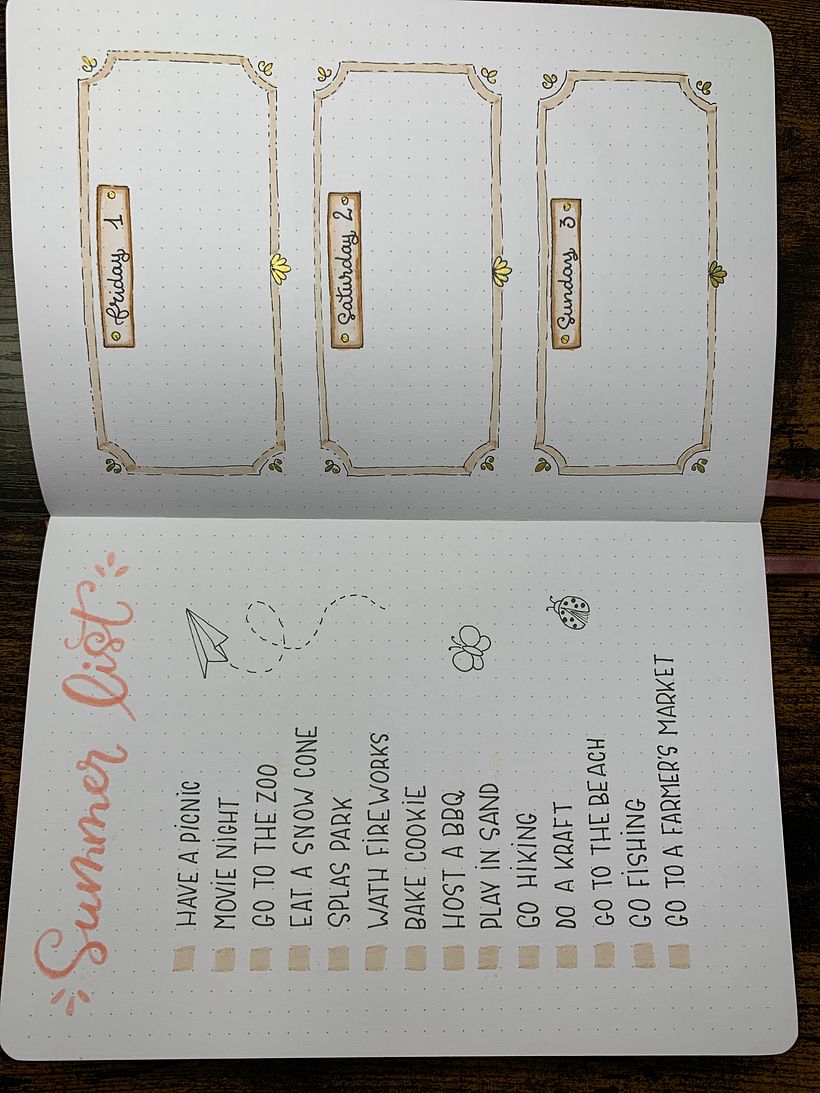 Summer list
HAVE A PICNIC
MOVIE NIGHT
GO TO THE ZOO
EAT A SNOW CONE
SPLAS PARK
WATH FIREWORKS
BAKE COOKIE
HOST A BBQ
PLAY IN SAND
GO HIKING
DO A KRAFT
GO TO THE BEACH
GO FISHING
GO TO A FARMER'S MARKET
friday 1
Saturday 2
Sunday 3